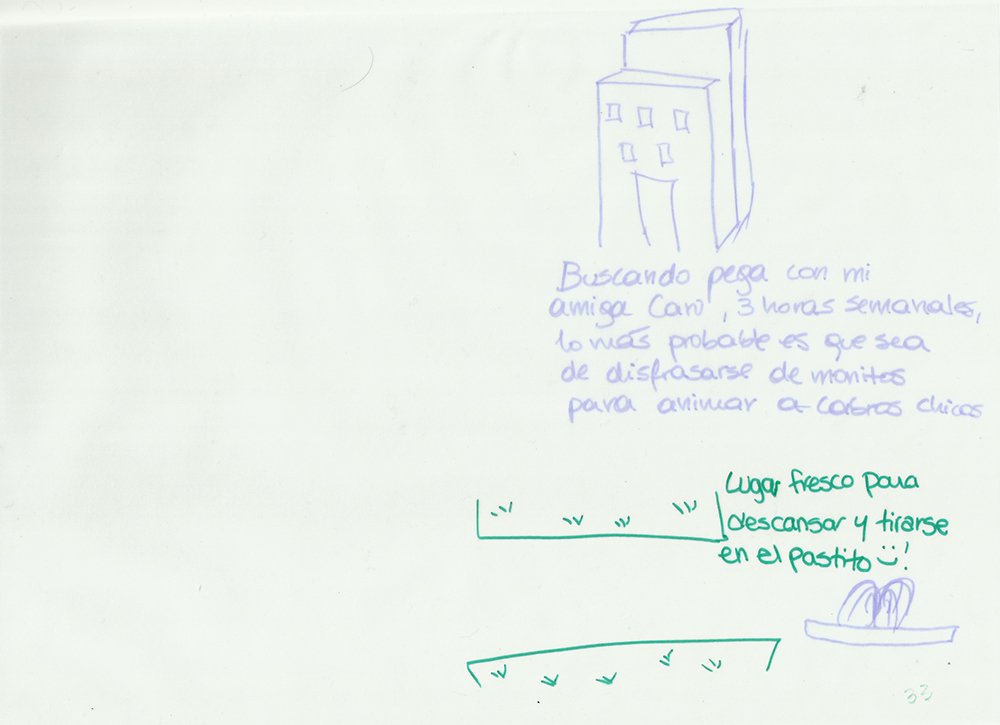 Buscando pega con mi
amiga Caro, 3 horas semanales,
lo más probable es que sea
de disfrasarse de monitos
para animar a cabros chicos
Lugar fresco para
descansar y tirarse
en el pastito !
33